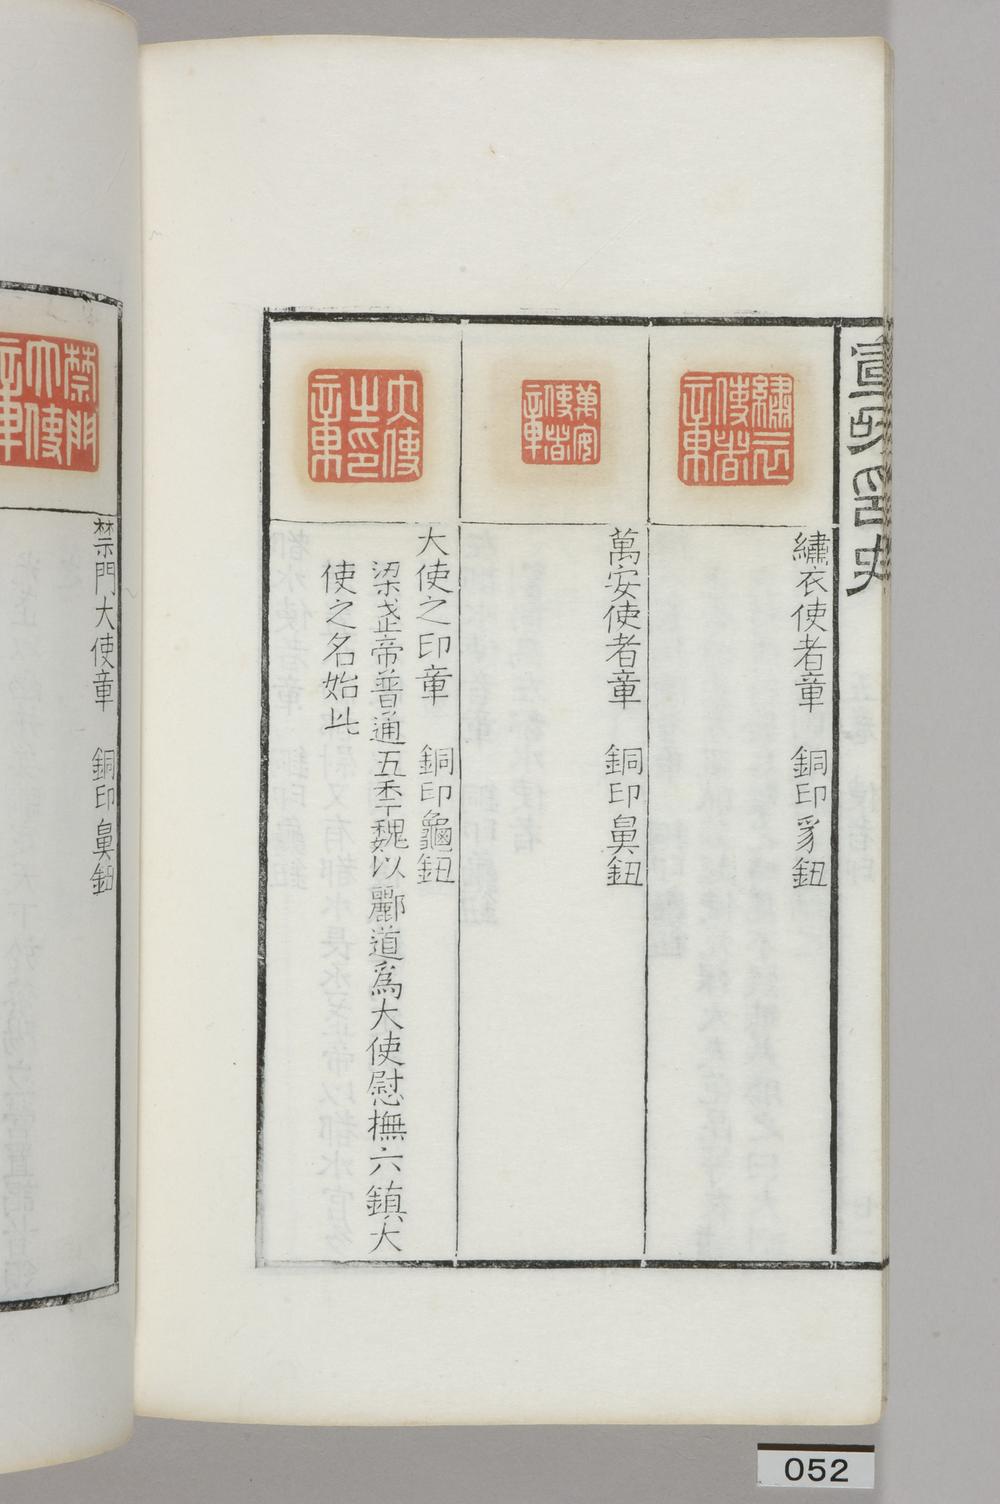 宣氏印史
繡衣使者章
繡衣使者章　銅印豸鈕
萬安使者章
萬安使者章　銅印鼻鈕
大使之印章
大使之印章　銅印龜鈕
梁武帝普通五秊魏以酈道爲大使慰撫六鎮大
使之名始此
禁門大使章
禁門大使章　銅印鼻鈕
052